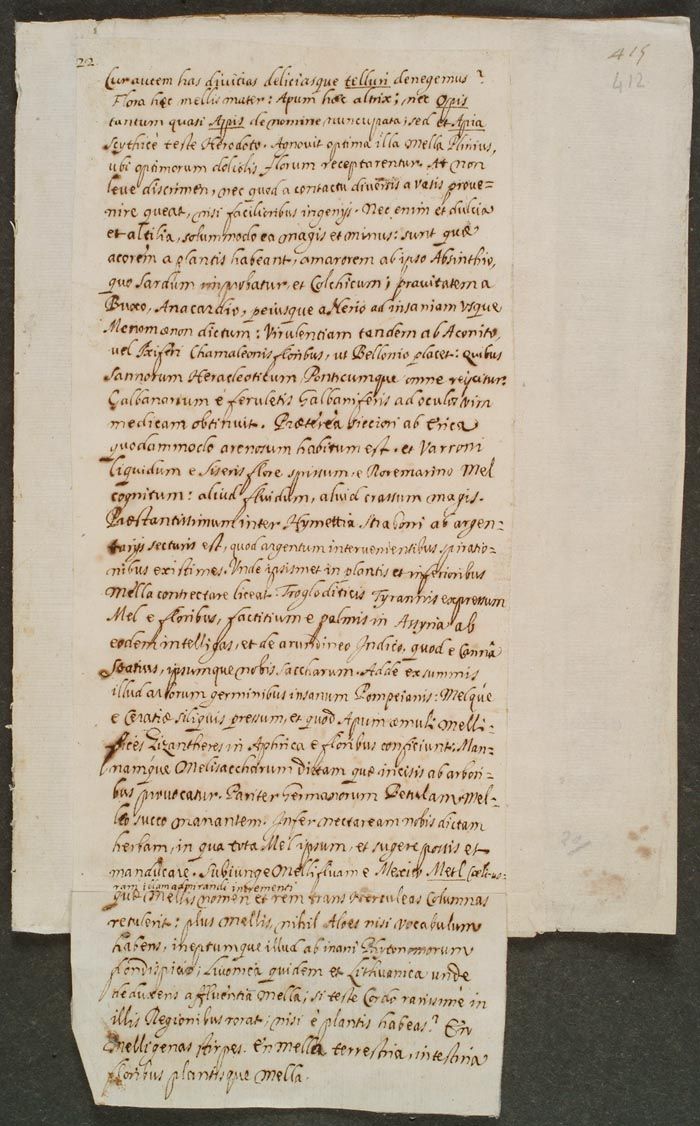 22
415
412
Cur autem has divitias deliciasque telluri denegemus?
Flora hęc mellis mater: Apum hæc altrix; nec Opis
tantum quasi Apis de nomine nuncupata; sed et Apia
Scythicè teste Herodoto. Agnovit optima illa Mella Plinius,
ubi optimorum doliolis florum receptarentur. At non
leve discrimen, nec quod a contactu diversis a vasis prove-
nire queat, nisi facilioribus ingenijs. Nec enim et dulcia
et altilia, solummodo ea magis et minus: sunt quæ
acorem a plantis habeant, amarorem ab ipso Absinthio,
quo Sardum improbatur, et Colchicum; pravitatem a
Buxo, Anacardio, peiusque a Nerio ad insaniam usque
Menomænon dictum: Virulentiam tandem ab Aconito,
vel Ixiferi Chamæleonis floribus, ut Bellonio placet: quibus
Sannorum Heracleoticum Ponticumque omne reijcitur.
Galbanorum è feruletis Galbaniferis ad oculos vim
medicam obtinuit. Prætereà ab Erica
quodammodo arenosum habitum est. et Varroni
liquidum e Siseris flore spissum, e Roremarino Mel
cognitum: aliud fluidum, aliud crassum magis.
Præstantissimum inter Hymettia Straboni ab argen-
tarijs secturis est, quod argentum intervenientibus spiratio-
nibus existimes. Unde ipsismet in plantis et inferioribus
Mella contrectare liceat. Trogloditicis Tyrannis expressum
Mel e floribus, factitium e palmis in Assyria ab
eodem intelligas, et de arundineo Indico, quod e Canna
Statius, ipsumque nobis Saccharum. Adde ex summis
illud arborum germinibus insanum Pompeianis: Melque
e Ceratiæ siliquis pressum, et quod Apum æmuli Melli-
fices Zizantheres in Aphrica e floribus conficiunt. Man-
namque Melisaccharum dictam quæ incisis ab arbori-
bus provocatur. Pariter Germanorum Betulam Mel-
leo succo manantem. Infer nectaream nobis dictam
herbam, in qua tota Mel ipsum, et sugere possis et
manducare. Subiunge Mellifluam e Mexico Metl
ram iliam admirandi incrementi
quæ Mellis nomen et rem trans Herculeas Columnas
retulerit: plus Mellis, nihil Aloes nisi vocabulum
habens, ineptumque illud ab inani Phytonomorum
Livonica quidem et Lithuanica unde
affluentia Mella; si teste Cordo rarissimè in
illis Regionibus rorat; nisi è plantis habeas? En
Melligenas stirpes. En mella terrestria, intestina
floribus plantisque mella.